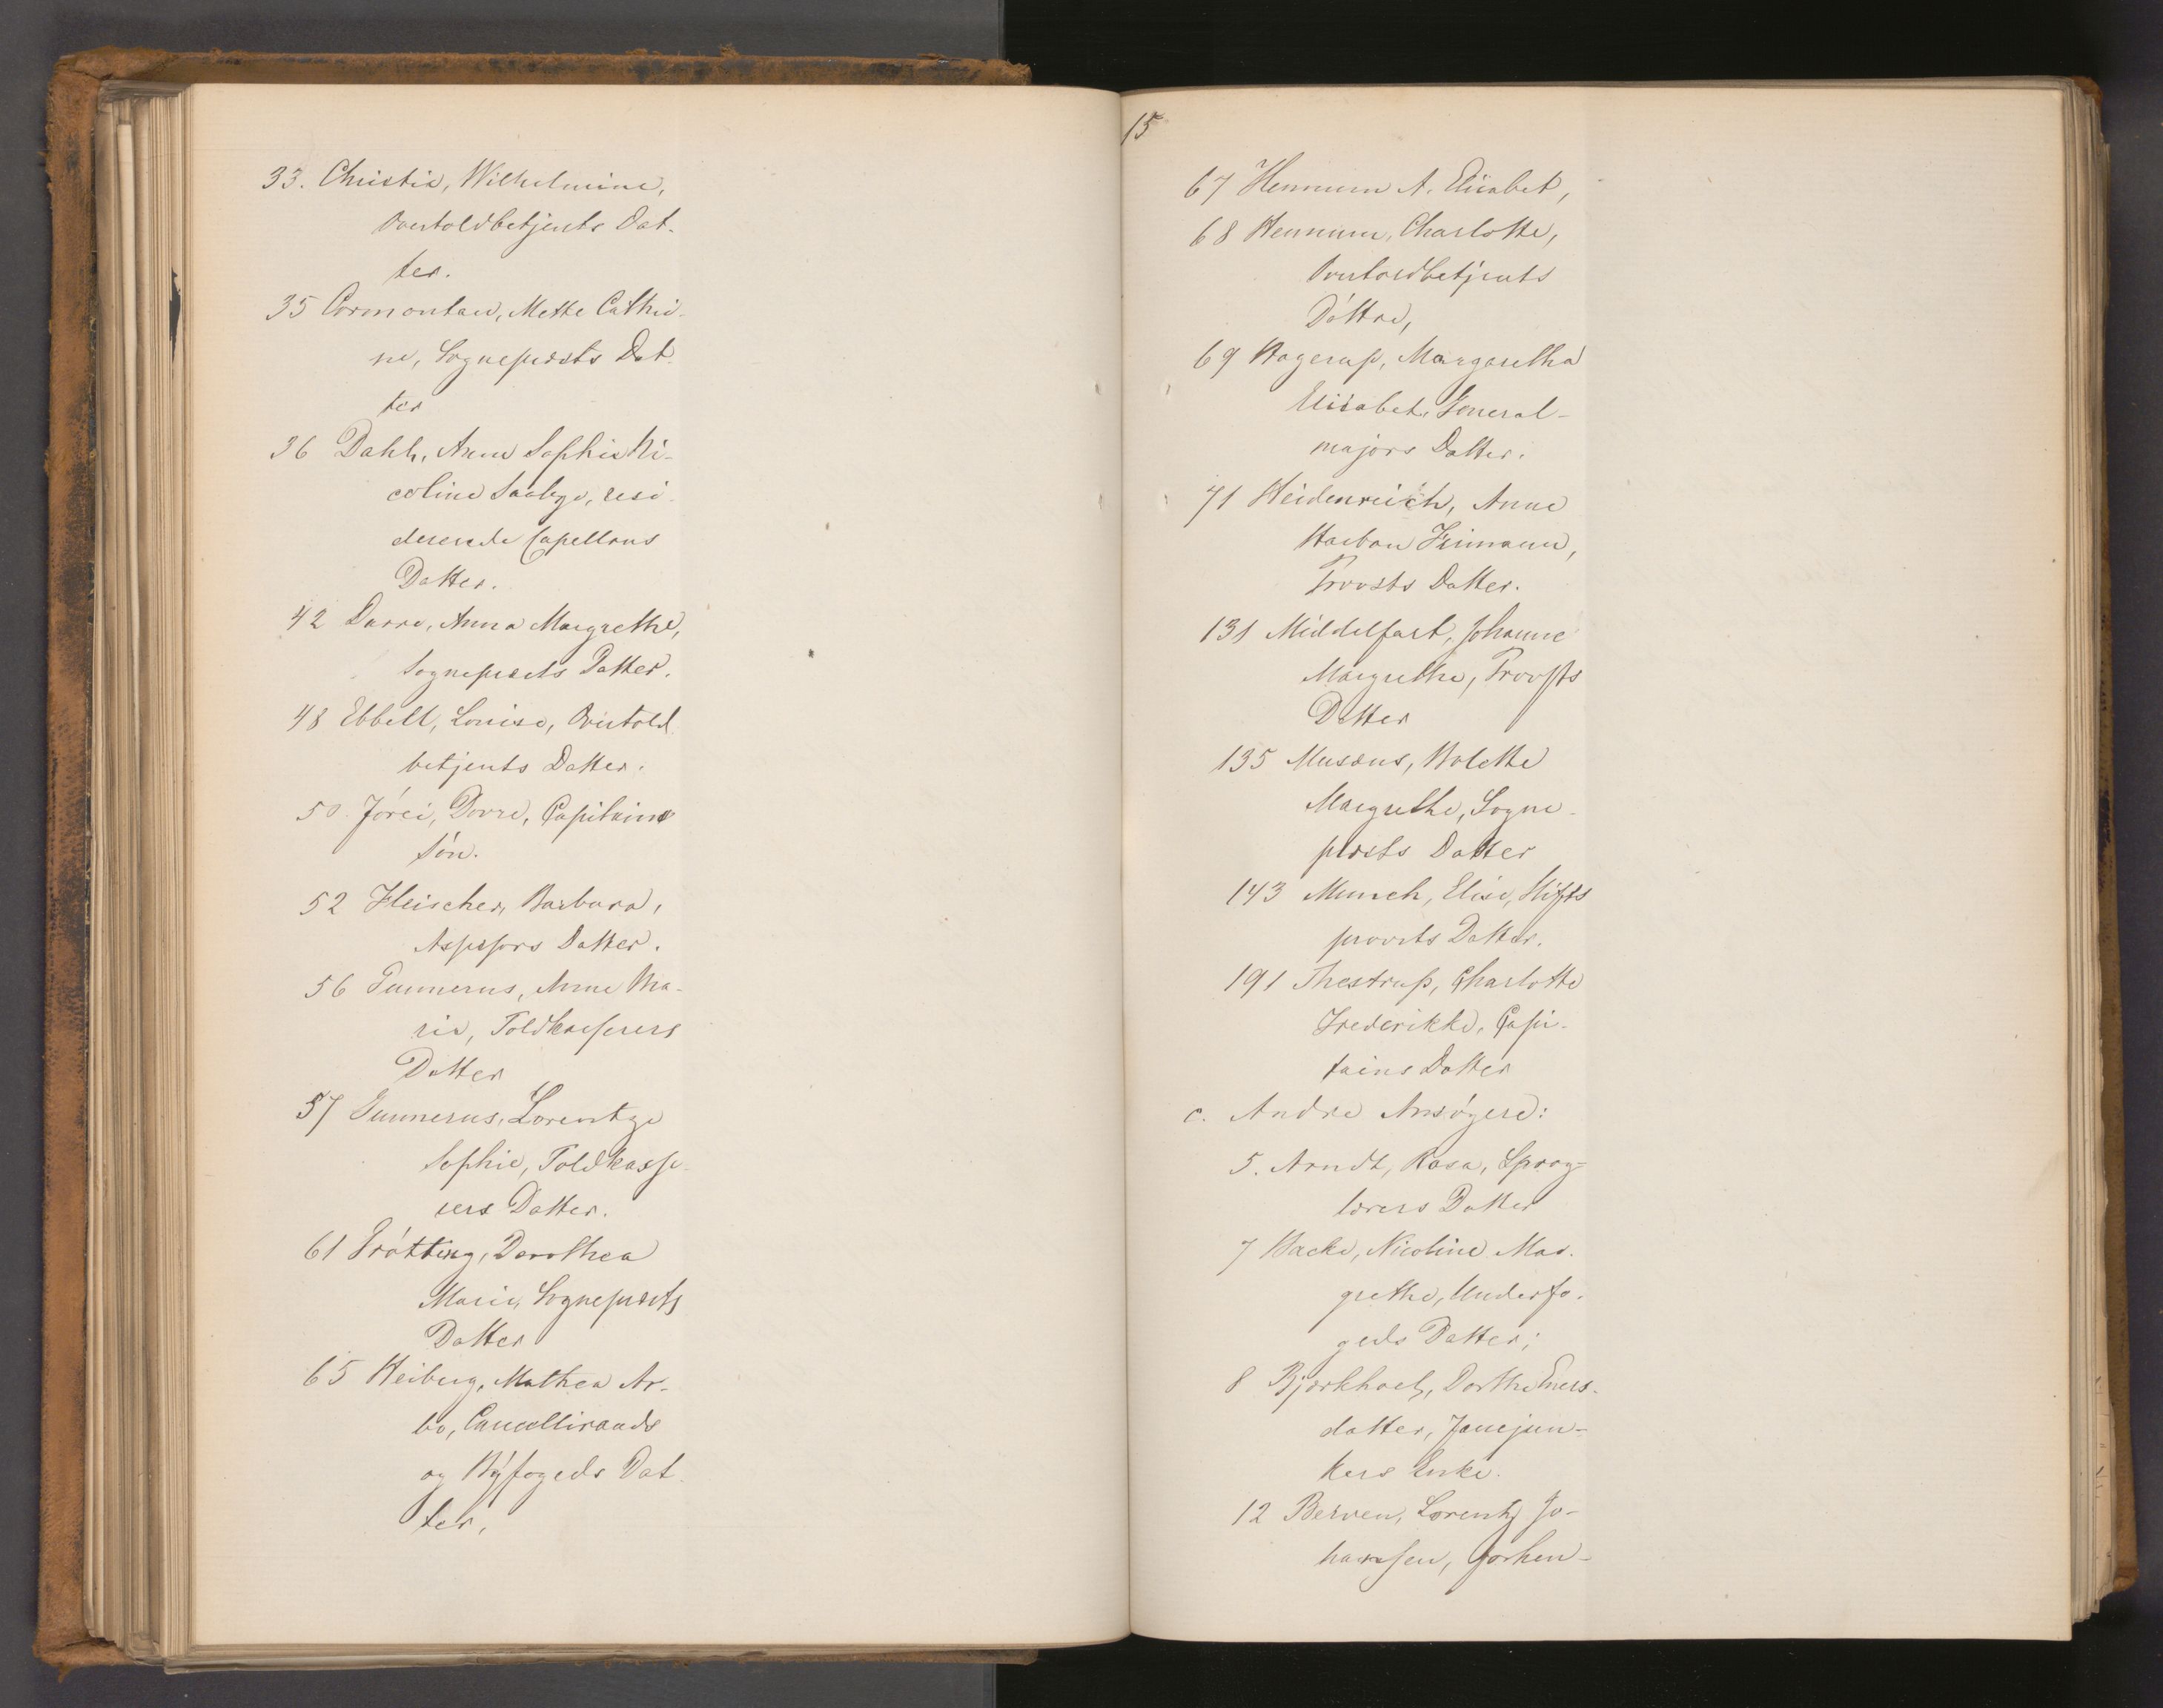 33. Christie, Wilhelmine,
Overtoldbetjents Dat-
ter.
35 Cormontan, Mette Cathri-
ne, Sognepræsts Dat
ter
36 Dahl, Anne Sophie Ni-
coline Saabye, resi-
derende Capellans
Datter.
42 Darre, Anna Margrethe,
Sognepræsts Datter.
48 Ebbell, Louise, Overtold
betjents Datter.
50. Dovre, Capitains
Sön.
52 Fleischer, Barbara,
Assessors Datter.
56 Gunnerus, Anne Ma-
rie, Toldkasserers
Datter
57 Gunnerus, Lorentze
Sophie, Toldkasse-
rers Datter.
61 Grötting, Dorothea
Marie, Sognepræsts
Datter
65 Heiberg, Mathea Ar-
bo, Cancelliraads
og Byfogeds Dat
ter,
15
67 Hemmum A. Elisabet,
68 Hemmum, Charlotte,
Overtoldbetjents
Döttre,
69 Hagerup, Margaretha
Elisabet, General-
majors Datter.
71 Heidenreich, Anne
Hartvig,
Provsts Datter.
131 Middelfart, Johanne
Margrethe, Provsts
Datter
135 Musæus, Bolette
Margrethe, Sogne-
præsts Datter
143 Munch, Elise, Stifts
provsts Datter.
191 Thestrup, Charlotte
Frederikke, Capi-
tains Datter
c. Andre Ansögere:
5. Arndt, Rosa, Sprog-
lærers Datter
7 Backe, Nicoline Mar-
grethe, Underfo-
geds Datter;
8 Bjerkhoel, Dorthe Eners-
datter, Fanejun-
kers Enke.
12 Berven, Lorentz Jo-
hannsen, forhen-